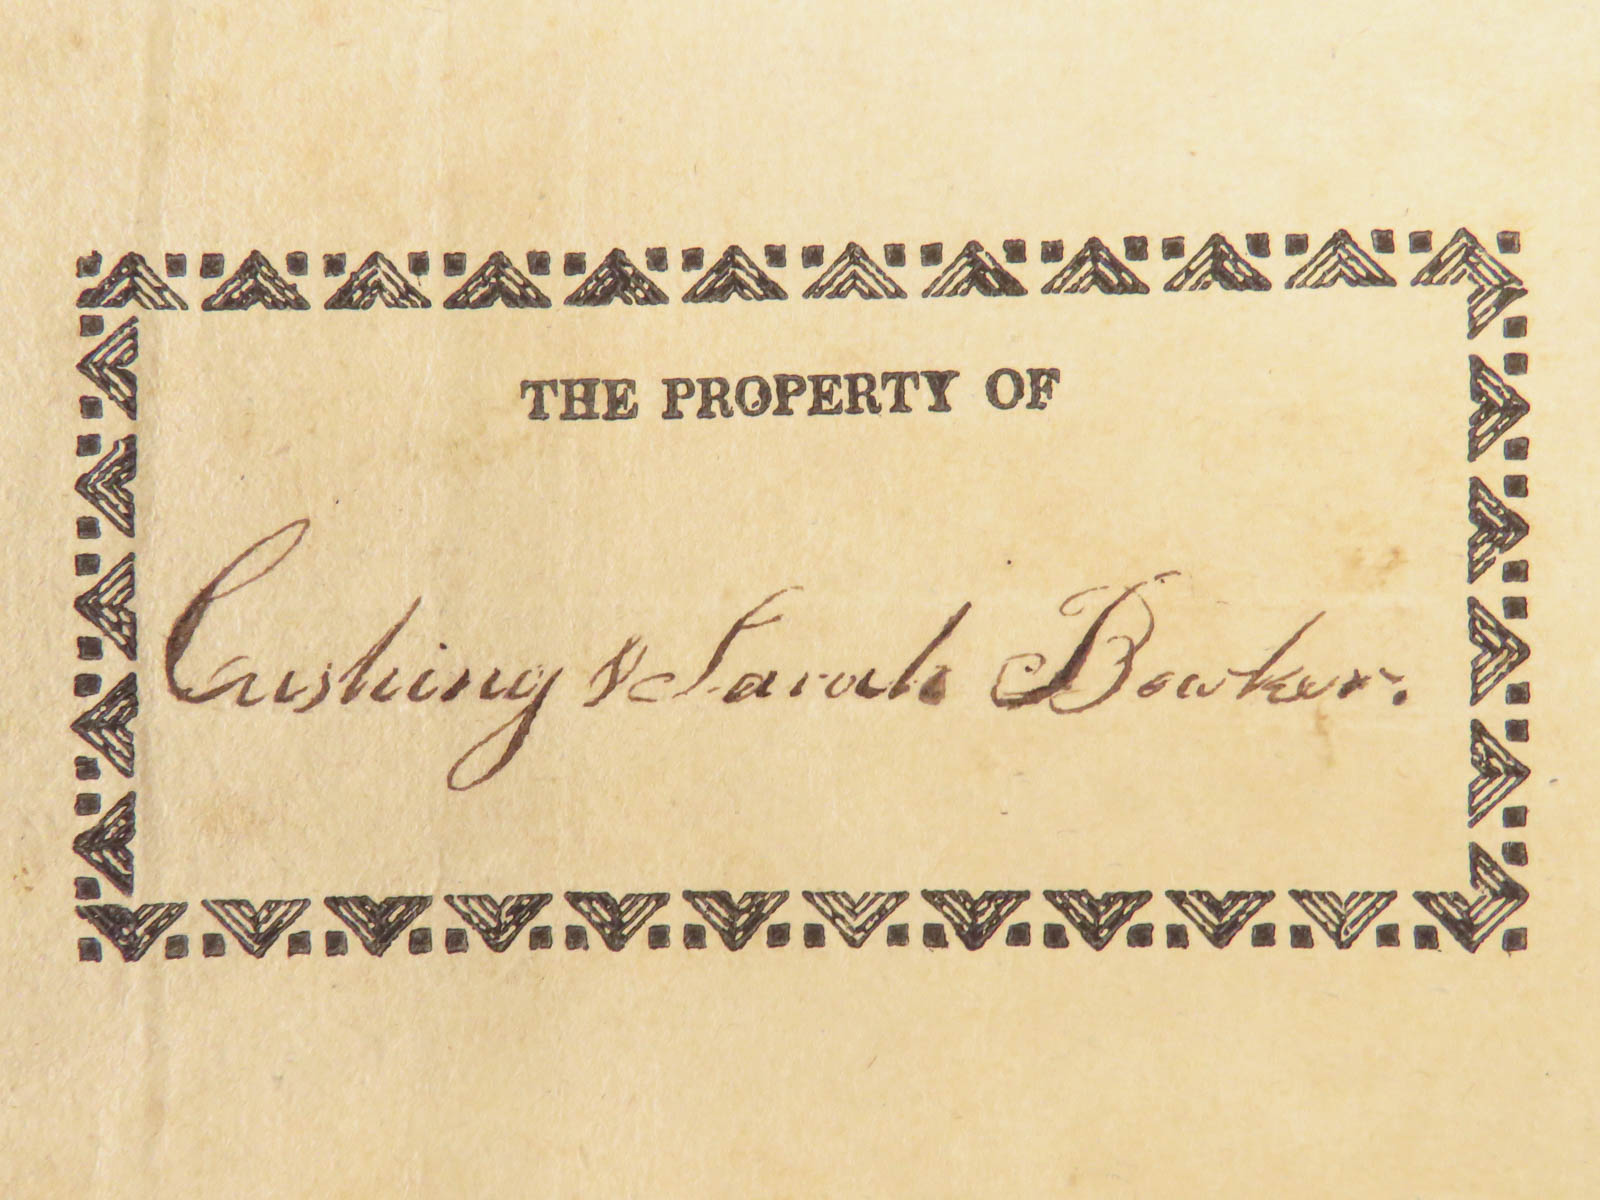 THE PROPERTY OF
Cushing & Sarah Bowker.